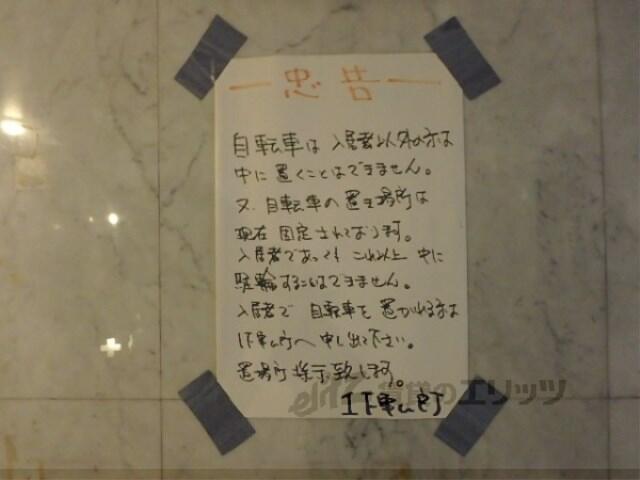 ー忠告ー
自転車は 入居者以外の方は
中に置くことはできません。
又、自転車の置き場所は
現在 固定されております。
入居者であっても これ以上 中に
駐輪することはできません。
入居者で 自転車を 置かれる方は
1F事ム所へ 申し出て下さい。
置場所 指示致します。
1F事ム所
賃貸のエリッツ